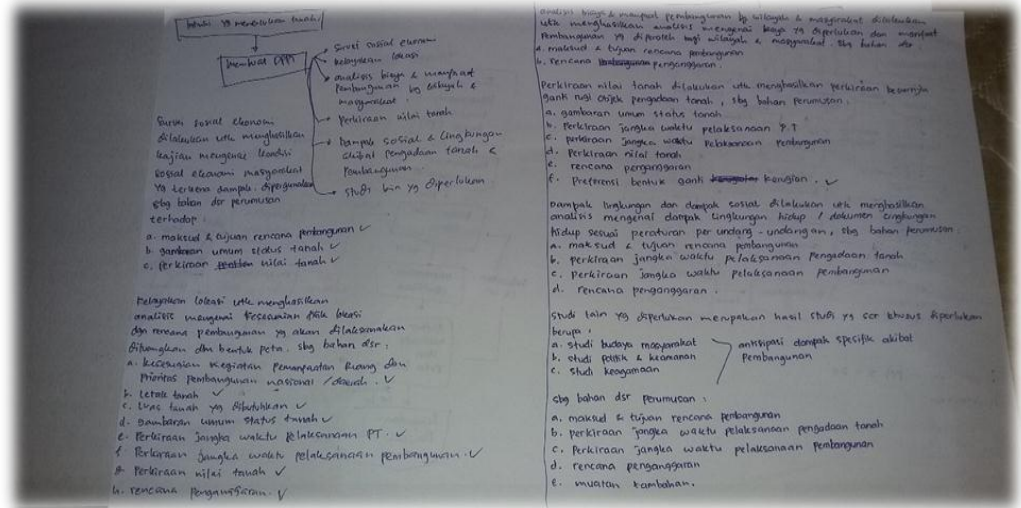 yg memerlukan tanah
membuat DPPT
→ Survei sosial ekonomi
→ kelayakan lokasi
→ analisis biaya & manfaat
pembangunan bg wilayah &
masyarakat.
→ Perkiraan nilai tanah
→ Dampak sosial & lingkungan
akibat pengadaan tanah &
Pembangunan.
→ studi lain yg diperlukan
Survei sosial ekonomi
dilakukan utk menghasilkan
kajian mengenai kondisi
sosial ekonomi masyarakat
yg terkena dampak. dipergunakan
sbg bahan dsr perumusan
terhadap.
a. maksud & tujuan rencana pembangunan ✓
b. gambaran umum status tanah ✓
c. Perkiraan nilai tanah ✓
Kelayakan lokasi utk menghasilkan
analisis mengenai kesesuaian fisik lokasi
dgn rencana pembangunan yg akan dilaksanakan
dituangkan dlm bentuk peta. sbg bahan dsr:
a. kesesuaian kegiatan pemanfaatan Ruang dan
Prioritas pembangunan nasional / daerah. ✓
b. Letak tanah ✓
c. Luas tanah yg dibutuhkan ✓
d. Gambaran umum status tanah ✓
e. Perkiraan jangka waktu pelaksanaan PT. ✓
f. Perkiraan jangka waktu pelaksanaan pembangunan. ✓
g. Perkiraan nilai tanah ✓
h. rencana Penganggaran. ✓
analisis biaya & manfaat pembangunan bg wilayah & masyarakat dilakukan
utk menghasilkan analisis mengenai biaya yg diperlukan dan manfaat
Pembangunan yg diperoleh bagi wilayah & masyarakat. sbg bahan dsr
a. maksud & tujuan rencana pembangunan
b. rencana penganggaran.
Perkiraan nilai tanah dilakukan utk menghasilkan perkiraan besarnya
ganti rugi objek pengadaan tanah, sbg bahan perumusan.
a. gambaran umum status tanah
b. Perkiraan jangka waktu pelaksanaan P.T
c. perkiraan jangka waktu Pelaksanaan Pembangunan
d. Perkiraan nilai tanah
e. rencana penganggaran
f. Preferensi bentuk ganti kerugian. ✓
Dampak lingkungan dan dampak sosial dilakukan utk menghasilkan
analisis mengenai dampak lingkungan hidup / dokumen lingkungan
hidup sesuai peraturan per undang - undangan, sbg bahan perumusan
a. maksud & tujuan rencana pembangunan
b. perkiraan jangka waktu pelaksanaan Pengadaan tanah
c. perkiraan jangka waktu pelaksanaan pembangunan
d. rencana penganggaran.
Studi lain yg diperlukan merupakan hasil studi yg scr khusus diperlukan
berupa:
a. studi budaya masyarakat
b. studi politik & keamanan
c. studi keagamaan
antisipasi dampak spesifik akibat
Pembangunan
sbg bahan dsr perumusan:
a. maksud & tujuan rencana pembangunan
b. perkiraan jangka waktu pelaksanaan pengadaan tanah
c. Perkiraan jangka waktu pelaksanaan pembangunan
d. rencana penganggaran
e. muatan tambahan.